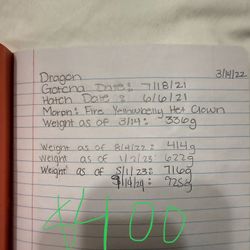 Dragon 3/14/22
Gotcha Date: 7/18/21
Hatch Date: 6/6/21
Morph: Fire Yellowbelly Het Clown
Weight as of 3/14: 336g
Weight as of 8/4/22: 414g
Weight as of 1/2/23: 622g
Weight as of 5/1/23: 716g
725g
$400